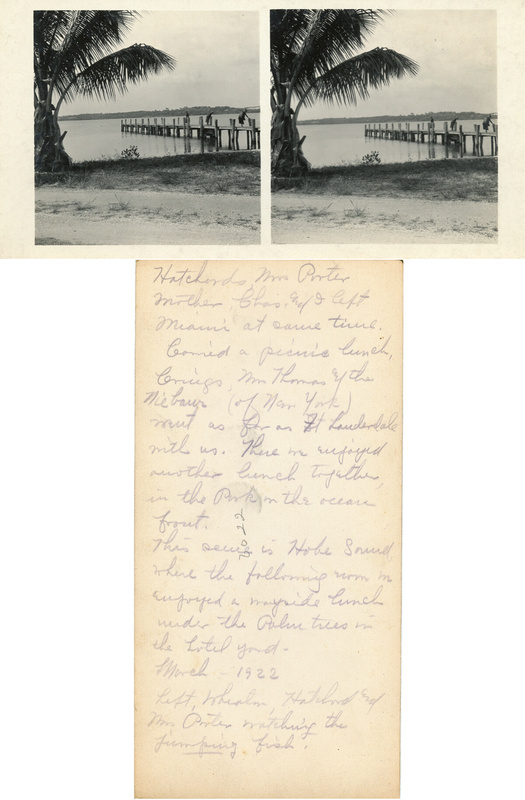 Hatchords, Mrs Porter
Mother, Chas. & I left
Miami at same time.
Carried a picnic lunch,
Mrs Thomas & the
(of New York)
went as far as Ft Lauderdale
with us. There we enjoyed
another lunch together,
in the Park on the ocean
front.
No 22
This scene is Hobe Sound
where the following noon we
enjoyed a wayside lunch
under the Palm trees in
the hotel yard -
March - 1922
Left, Hatchord &
Mrs Porter watching the
jumping fish.